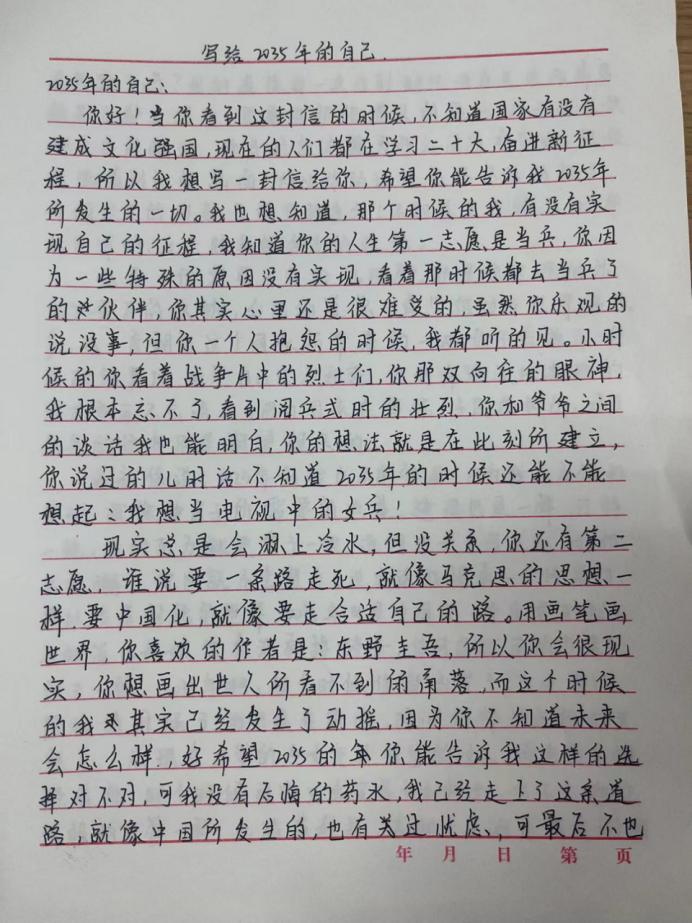 写给2035年的自己.
2035年的自己:
你好!当你看到这封信的时候,不知道国家有没有
建成文化强国,现在的人们都在学习二十大,奋进新征
程,所以我想写一封信给你,希望你能告诉我2035年
所发生的一切。我也想知道,那个时候的我,有没有实
现自己的征程,我知道你的人生第一志愿是当兵,你因
为一些特殊的原因没有实现,看着那时候都去当兵了
的伙伴,你其实心里还是很难受的,虽然你乐观的
说没事,但你一个人抱怨的时候,我都听的见。小时
候的你看着战争片中的烈士们,你那双向往的眼神,
我根本忘不了,看到阅兵式时的壮烈,你和爷爷之间
的谈话我也能明白,你的想法就是在此刻所建立,
你说过的儿时话不知道2035年的时候还能不能
想起:我想当电视中的女兵!
现实总是会淋上冷水,但没关系,你还有第二
志愿,谁说要一条路走死,就像马克思的思想一
样,要中国化,就像要走合适自己的路。用画笔画
世界,你喜欢的作者是:东野圭吾,所以你会很现
实,你想画出世人所看不到的角落,而这个时候
的我其实已经发生了动摇,因为你不知道未来
会怎么样,好希望2035的年你能告诉我这样的选
择对不对,可我没有后悔的药水,我已经走上了这条道
路,就像中国所发生的,也有过忧虑,可最后不也
年 月 日 第 页